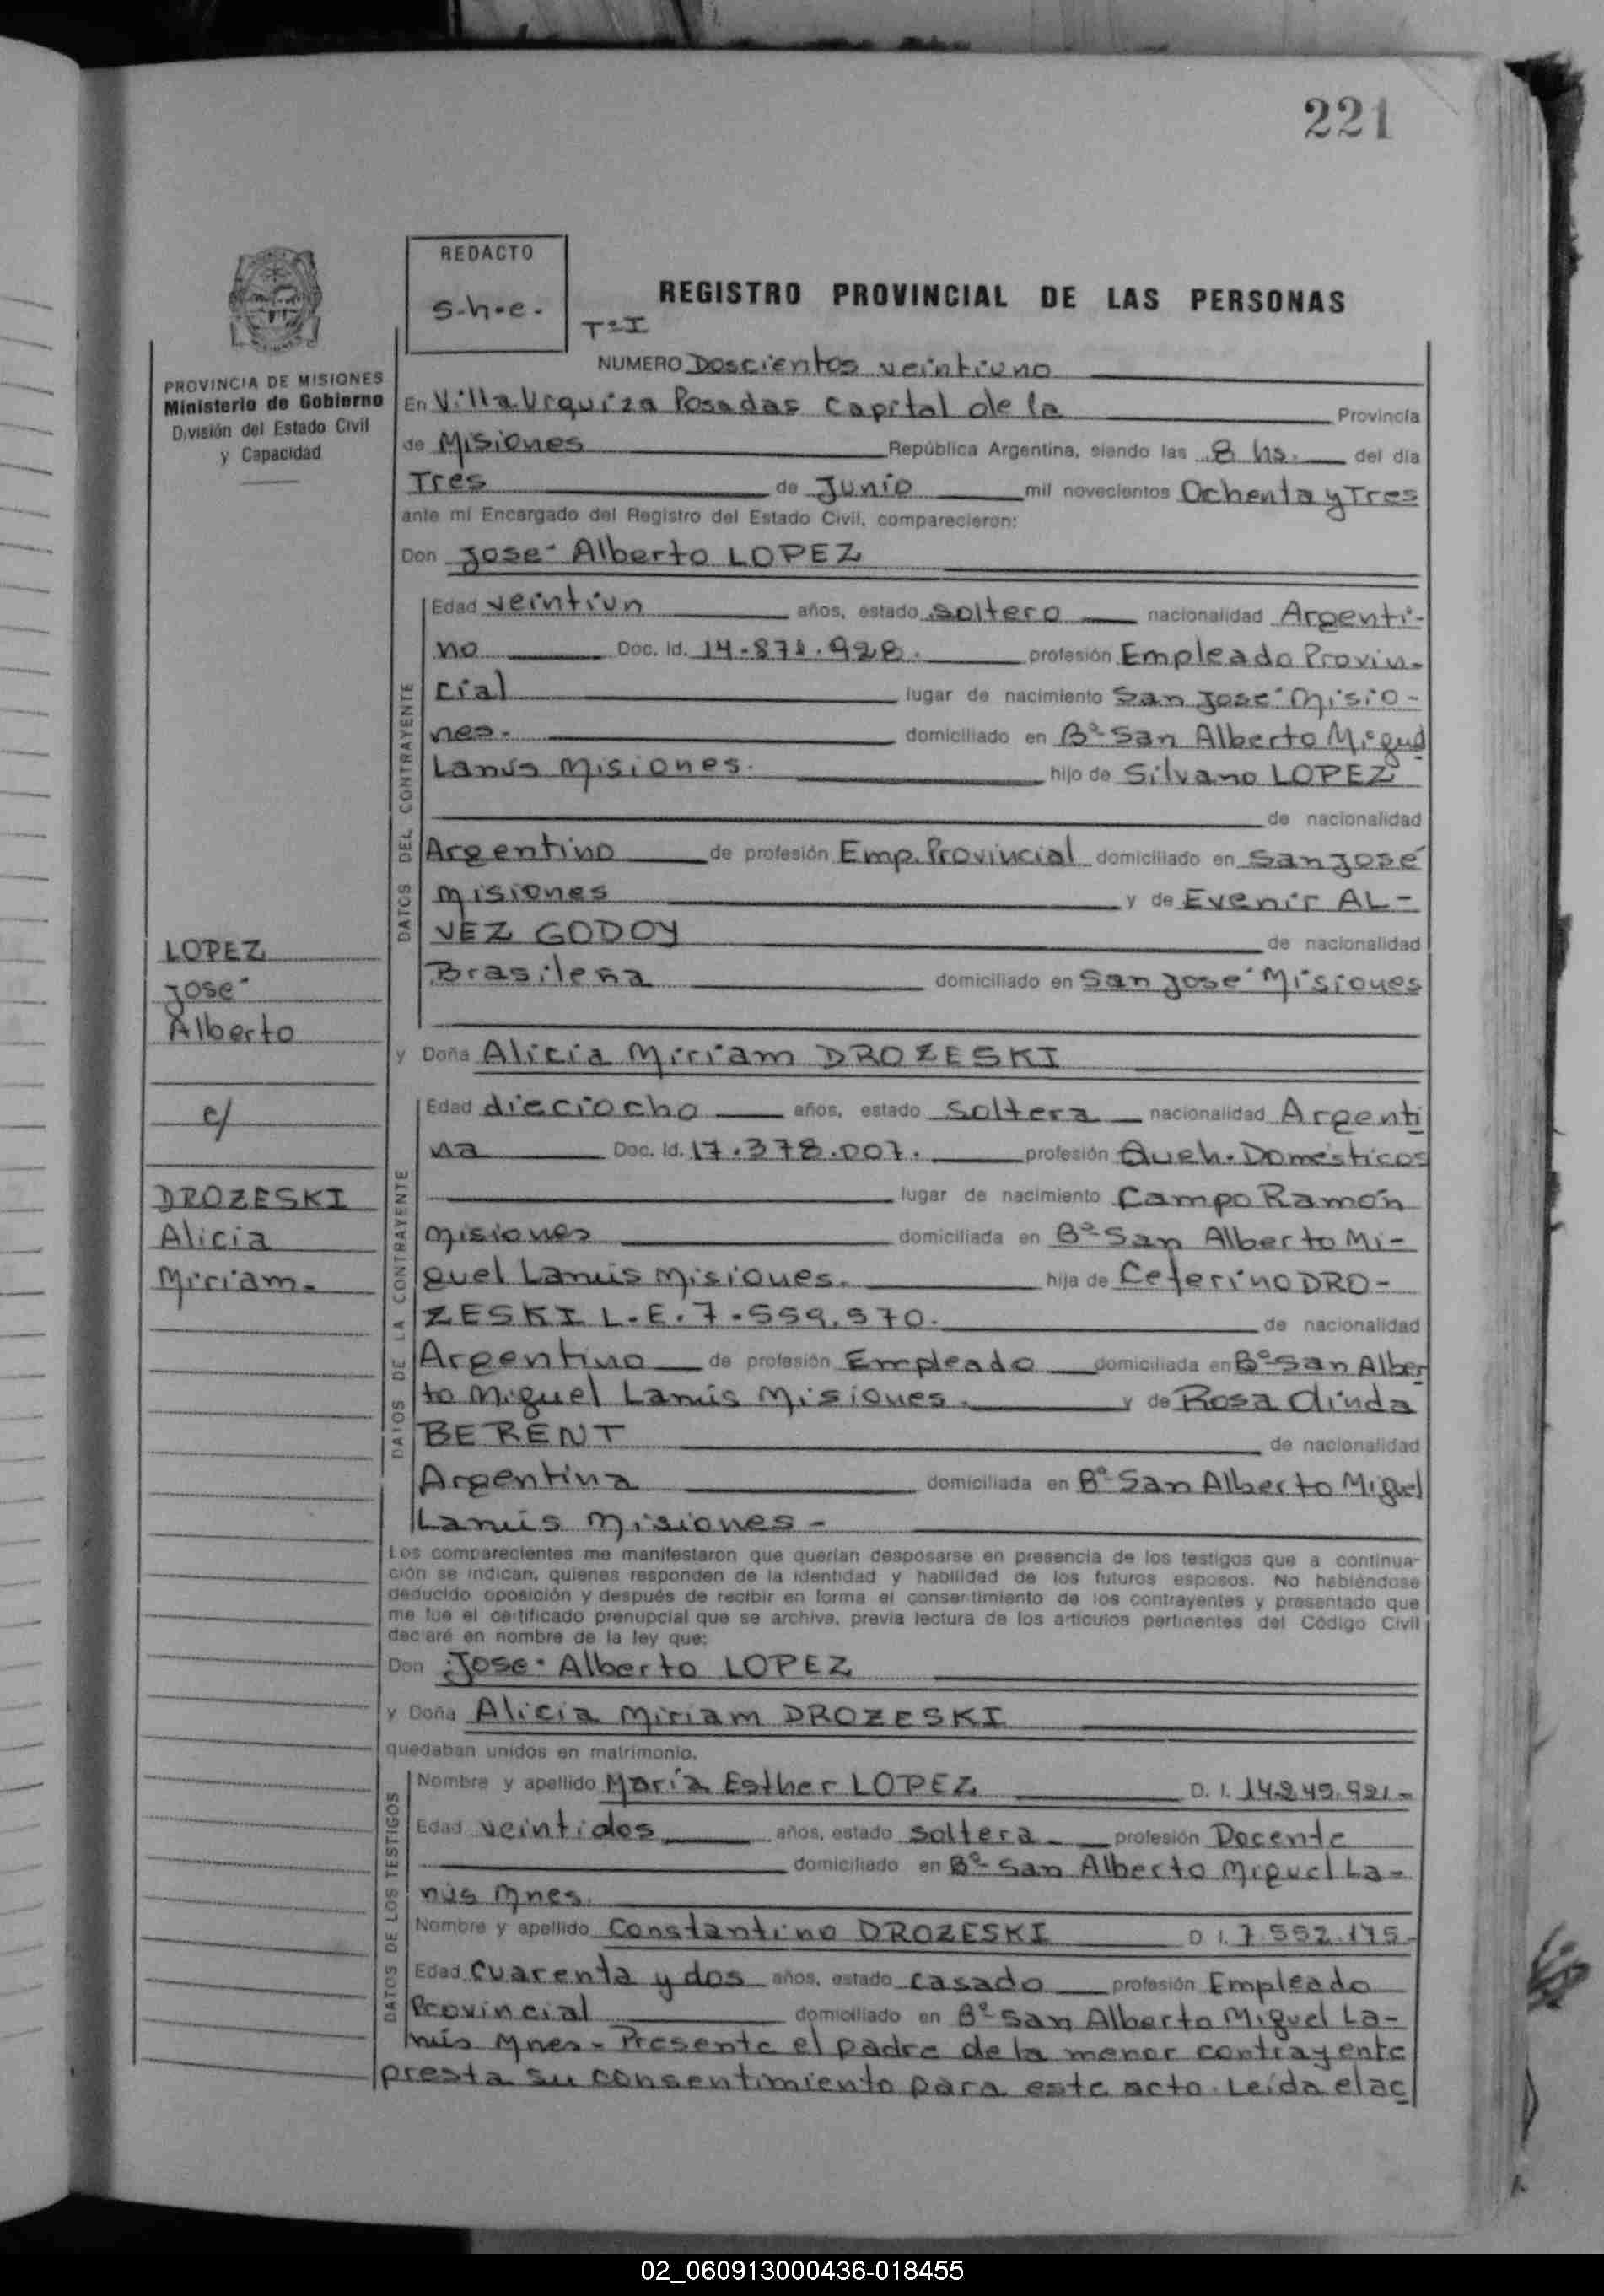 221
REDACTO
s.h.e.
REGISTRO PROVINCIAL DE LAS PERSONAS
Tº I
PROVINCIA DE MISIONES
Ministerio de Gobierno
División del Estado Civil
y Capacidad
NUMERO Doscientos veintiuno
En Villa Urquiza Posadas Capital de la Provincia
de Misiones República Argentina, siendo las 8 hs. del día
Tres de Junio mil novecientos Ochenta y Tres
ante mi Encargado del Registro del Estado Civil, comparecieron:
Don José Alberto LOPEZ
DATOS DEL CONTRAYENTE
Edad veintiun años, estado soltero nacionalidad Argenti-
no Doc. Id. 14.871.928. profesión Empleado Provin-
cial lugar de nacimiento San José Misio-
nes. domiciliado en Bº San Alberto Miguel
Lanús Misiones. hijo de Silvano LOPEZ
de nacionalidad
Argentino de profesión Emp. Provincial domiciliado en San José
Misiones y de Evenir AL-
VEZ GODOY de nacionalidad
Brasileña domiciliado en San José Misiones
LOPEZ
José
Alberto
c/
DROZESKI
Alicia
Miriam.
y Doña Alicia Miriam DROZESKI
DATOS DE LA CONTRAYENTE
Edad dieciocho años, estado soltera nacionalidad Argenti
na Doc. Id. 17.378.007. profesión Queh. Domésticos
lugar de nacimiento Campo Ramón
Misiones domiciliada en Bº San Alberto Mi-
guel Lanús Misiones. hija de Ceferino DRO-
ZESKI L.E. 7.559.570. de nacionalidad
Argentino de profesión Empleado domiciliada en Bº San Alber
to Miguel Lanús Misiones. y de Rosa Olinda
BERENT de nacionalidad
Argentina domiciliada en Bº San Alberto Miguel
Lanús Misiones -
Los comparecientes me manifestaron que querían desposarse en presencia de los testigos que a continua-
ción se indican, quienes responden de la identidad y habilidad de los futuros esposos. No habiéndose
deducido oposición y después de recibir en forma el consentimiento de los contrayentes y presentado que
me fue el certificado prenupcial que se archiva, previa lectura de los artículos pertinentes del Código Civil
declaré en nombre de la ley que:
Don José Alberto LOPEZ
y Doña Alicia Miriam DROZESKI
quedaban unidos en matrimonio.
DATOS DE LOS TESTIGOS
Nombre y apellido María Esther LOPEZ D. I. 14.249.921-
Edad veintidos años, estado soltera profesión Docente
domiciliado en Bº San Alberto Miguel La-
nús Mnes.
Nombre y apellido Constantino DROZESKI D. I. 7.552.175-
Edad cuarenta y dos años, estado casado profesión Empleado
Provincial domiciliado en Bº San Alberto Miguel La-
nús Mnes- Presente el padre de la menor contrayente
presta su consentimiento para este acto. Leída el ac
02_060913000436-018455